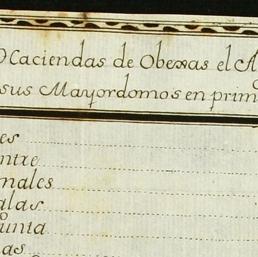 Haciendas de Obexas el A
sus Mayordomos en prim
es
ntre
nales
alas
Punta
as